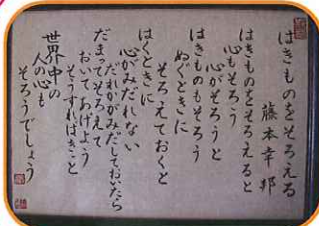 はきものをそろえる
藤本幸邦
はきものをそろえると
心もそろう
心がそろうと
はきものもそろう
ぬぐときに
そろえておくと
はくときに
心がみだれない
だれかがみだしておいたら
だまってそろえて
おいてあげよう
そうすればきっと
世界中の
人の心も
そろうでしょう